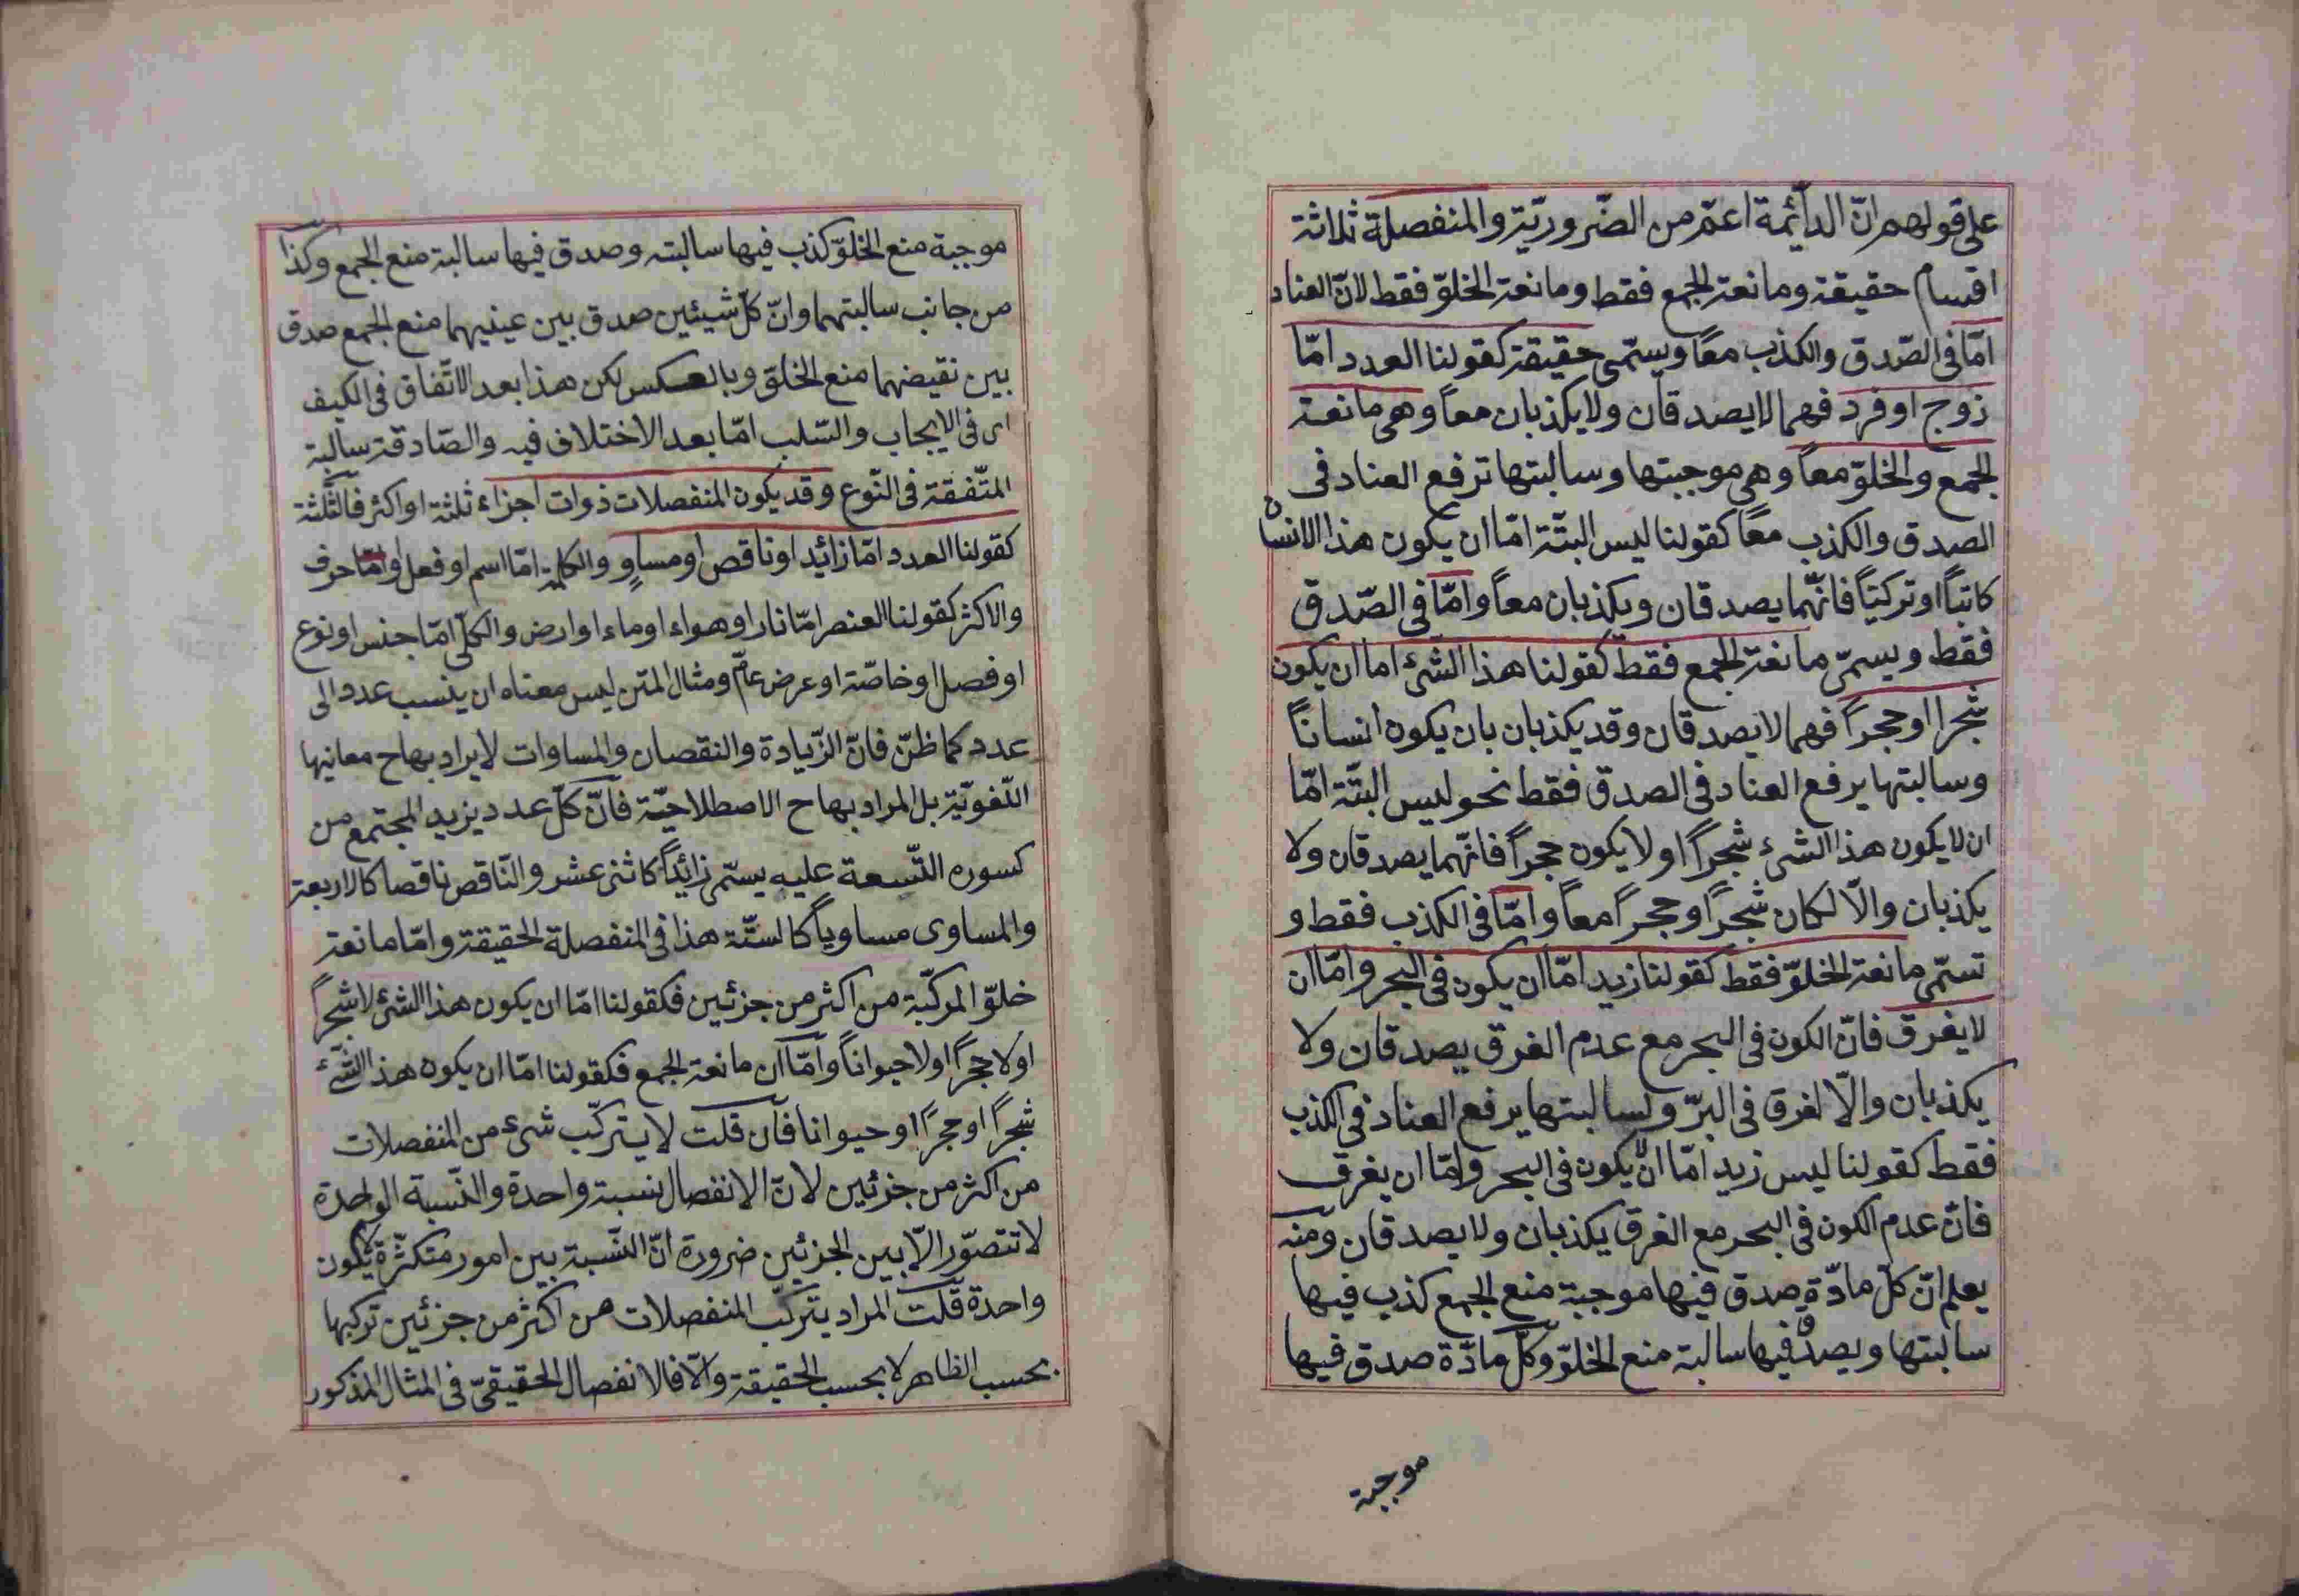 على قولهم انّ الدائمة اعمّ من الضّروريّة والمنفصلة ثلاثة
اقسام حقيقة ومانعة الجمع فقط ومانعة الخلوّ فقط لانّ العناد
امّا فى الصّدق والكذب معًا ويسمّى حقيقة كقولنا العدد امّا
زوج او فرد فهما لا يصدقان ولا يكذبان معاً وهى مانعة
الجمع والخلوّ معاً وهى موجبتها وسالبتها ترفع العناد فى
الصدق والكذب معًا كقولنا ليس البتّة امّا ان يكون هذا الانسان
كاتباً او تركيّاً فانّهما يصدقان ويكذبان معاً وامّا فى الصّدق
فقط ويسمّى مانعة الجمع فقط كقولنا هذا الشئ اما ان يكون
شجرا او حجراً فهما لا يصدقان وقد يكذبان بان يكون انساناً
وسالبتها يرفع العناد فى الصدق فقط نحو ليس البتّة امّا
ان لا يكون هذا الشئ شجراً او لا يكون حجراً فانّهما يصدقان ولا
يكذبان والّا لكان شجراً وحجراً معاً وامّا فى الكذب فقط و
تسمّى مانعة الخلوّ فقط كقولنا زيد امّا ان يكون فى البحر وامّا ان
لا يغرق فانّ الكون فى البحر مع عدم الغرق يصدقان ولا
يكذبان والّا لغرق فى البرّ ولسالبتها يرفع العناد فى الكذب
فقط كقولنا ليس زيد امّا ان لا يكون فى البحر وامّا ان يغرق
فانّ عدم الكون فى البحر مع الغرق يكذبان ولا يصدقان ومنه
يعلم انّ كلّ مادّة صدق فيها موجبة منع الجمع كذب فيها
سالبتها ويصدق فيها سالبة منع الخلوّ وكلّ مادّة صدق فيها
موجبة
موجبة منع الخلوّ كذب فيها سالبته وصدق فيها سالبة منع الجمع وكذا
من جانب سالبتهما وانّ كلّ شيئين صدق بين عينيهما منع الجمع صدق
بين نقيضهما منع الخلوّ وبالعكس لكن هذا بعد الاتّفاق فى الكيف
اى فى الايجاب والسّلب امّا بعد الاختلاف فيه والصّادقة سالبة
المتّفقة فى النّوع وقد يكون المنفصلات ذوات اجزاء ثلثة او اكثر فالثّلثة
كقولنا العدد امّا زائيد او ناقص او مساوٍ والكلمة امّا اسم او فعل او امّا حرف
والاكثر كقولنا العنصر امّا نار او هواء او ماء او ارض والكلّى امّا جنس او نوع
او فصل او خاصّة او عرض عامّ ومثال المتن ليس معناه ان ينسب عدد الى
عدد كما ظنّ فانّ الزّيادة والنقصان والمساوات لا يراد بها ح معانيها
اللّغويّة بل المراد بها ح الاصطلاحيّة فانّ كلّ عدد يزيد المجتمع من
كسوره التّسعة عليه يسمّى زائيداً كاثنى عشر والنّاقص ناقصا كالاربعة
والمساوى مساوياً كالستّة هذا فى المنفصلة الحقيقة وامّا مانعة
خلوّ المركّبة من اكثر من جزئين فكقولنا امّا ان يكون هذا الشئ لا شجراً
او لا حجراً او لا حيواناً وامّا ان مانعة الجمع فكقولنا امّا ان يكون هذا الشّئ
شجراً او حجراً او حيوانا فان قلت لا يتركّب شئ من المنفصلات
من اكثر من جزئين لانّ الانفصال نسبة واحدة والنّسبة الواحدة
لا تتصوّر الّا بين الجزئين ضرورة انّ النّسبة بين امور متكثّرة لا يكون
واحدة قلت المراد بتركّب المنفصلات من اكثر من جزئين تركبها
بحسب الظاهر لا بحسب الحقيقة والّا فالانفصال الحقيقىّ فى المثال المذكور